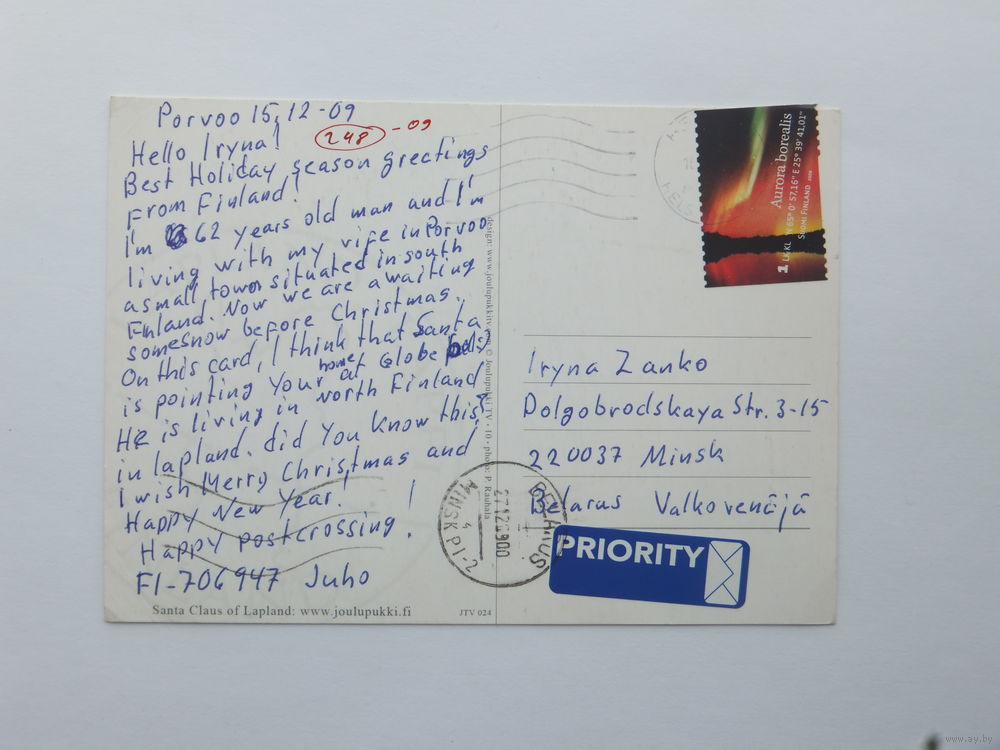 Porvoo 15.12-09
248 -09
Hello Iryna!
Best Holiday season greetings
from Finland!
I'm 62 years old man and I'm
living with my vife in Porvoo
a small town situated in south
Finland. Now we are a waiting
somesnow before Christmas.
On this card, I think that Santa
is pointing Your home at Globe
He is living in north Finland
in lapland. did You know this?
I wish Merry Christmas and
Happy New Year!
Happy postcrossing!
FI-706947 Juho
Santa Claus of Lapland: www.joulupukki.fi
JTV 024
design: www.joulupukkitv.com © Joulupukki TV • 10 • photo: P. Rauhala
Aurora borealis
1 LK/KL N 65° 0' 57,16" E 25° 39' 41,01"
SUOMI FINLAND
Iryna Zanko
Dolgobrodskaya Str. 3-15
220037 Minsk
Belarus Valkovenäjä
BELARUS
MINSK PI-2
PRIORITY
www.ay.by